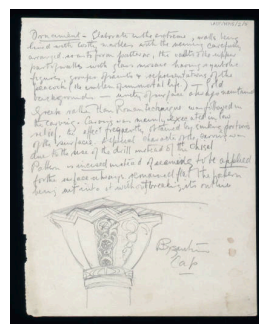 Ornament - Elaborate in the extreme, walls being
lined with costly marbles with the veining carefully
arranged so as to form patterns, the vaults & the upper
parts of walls with glass mosaic having symbolic
figures, groups of saints & representations of the
peacock (the emblem of immortal life) - Gold
background
Greek rather than Roman technique was followed in
the carving - Carving was mainly executed in low
relief, the effect frequently obtained by
of the surface. A special character of the carving was
due to the use of the drill instead of the chisel
Pattern is incised instead of seeming to be applied
for the surface always remained flat the pattern
being cut into it without breaking its outline
Byzantine
Cap